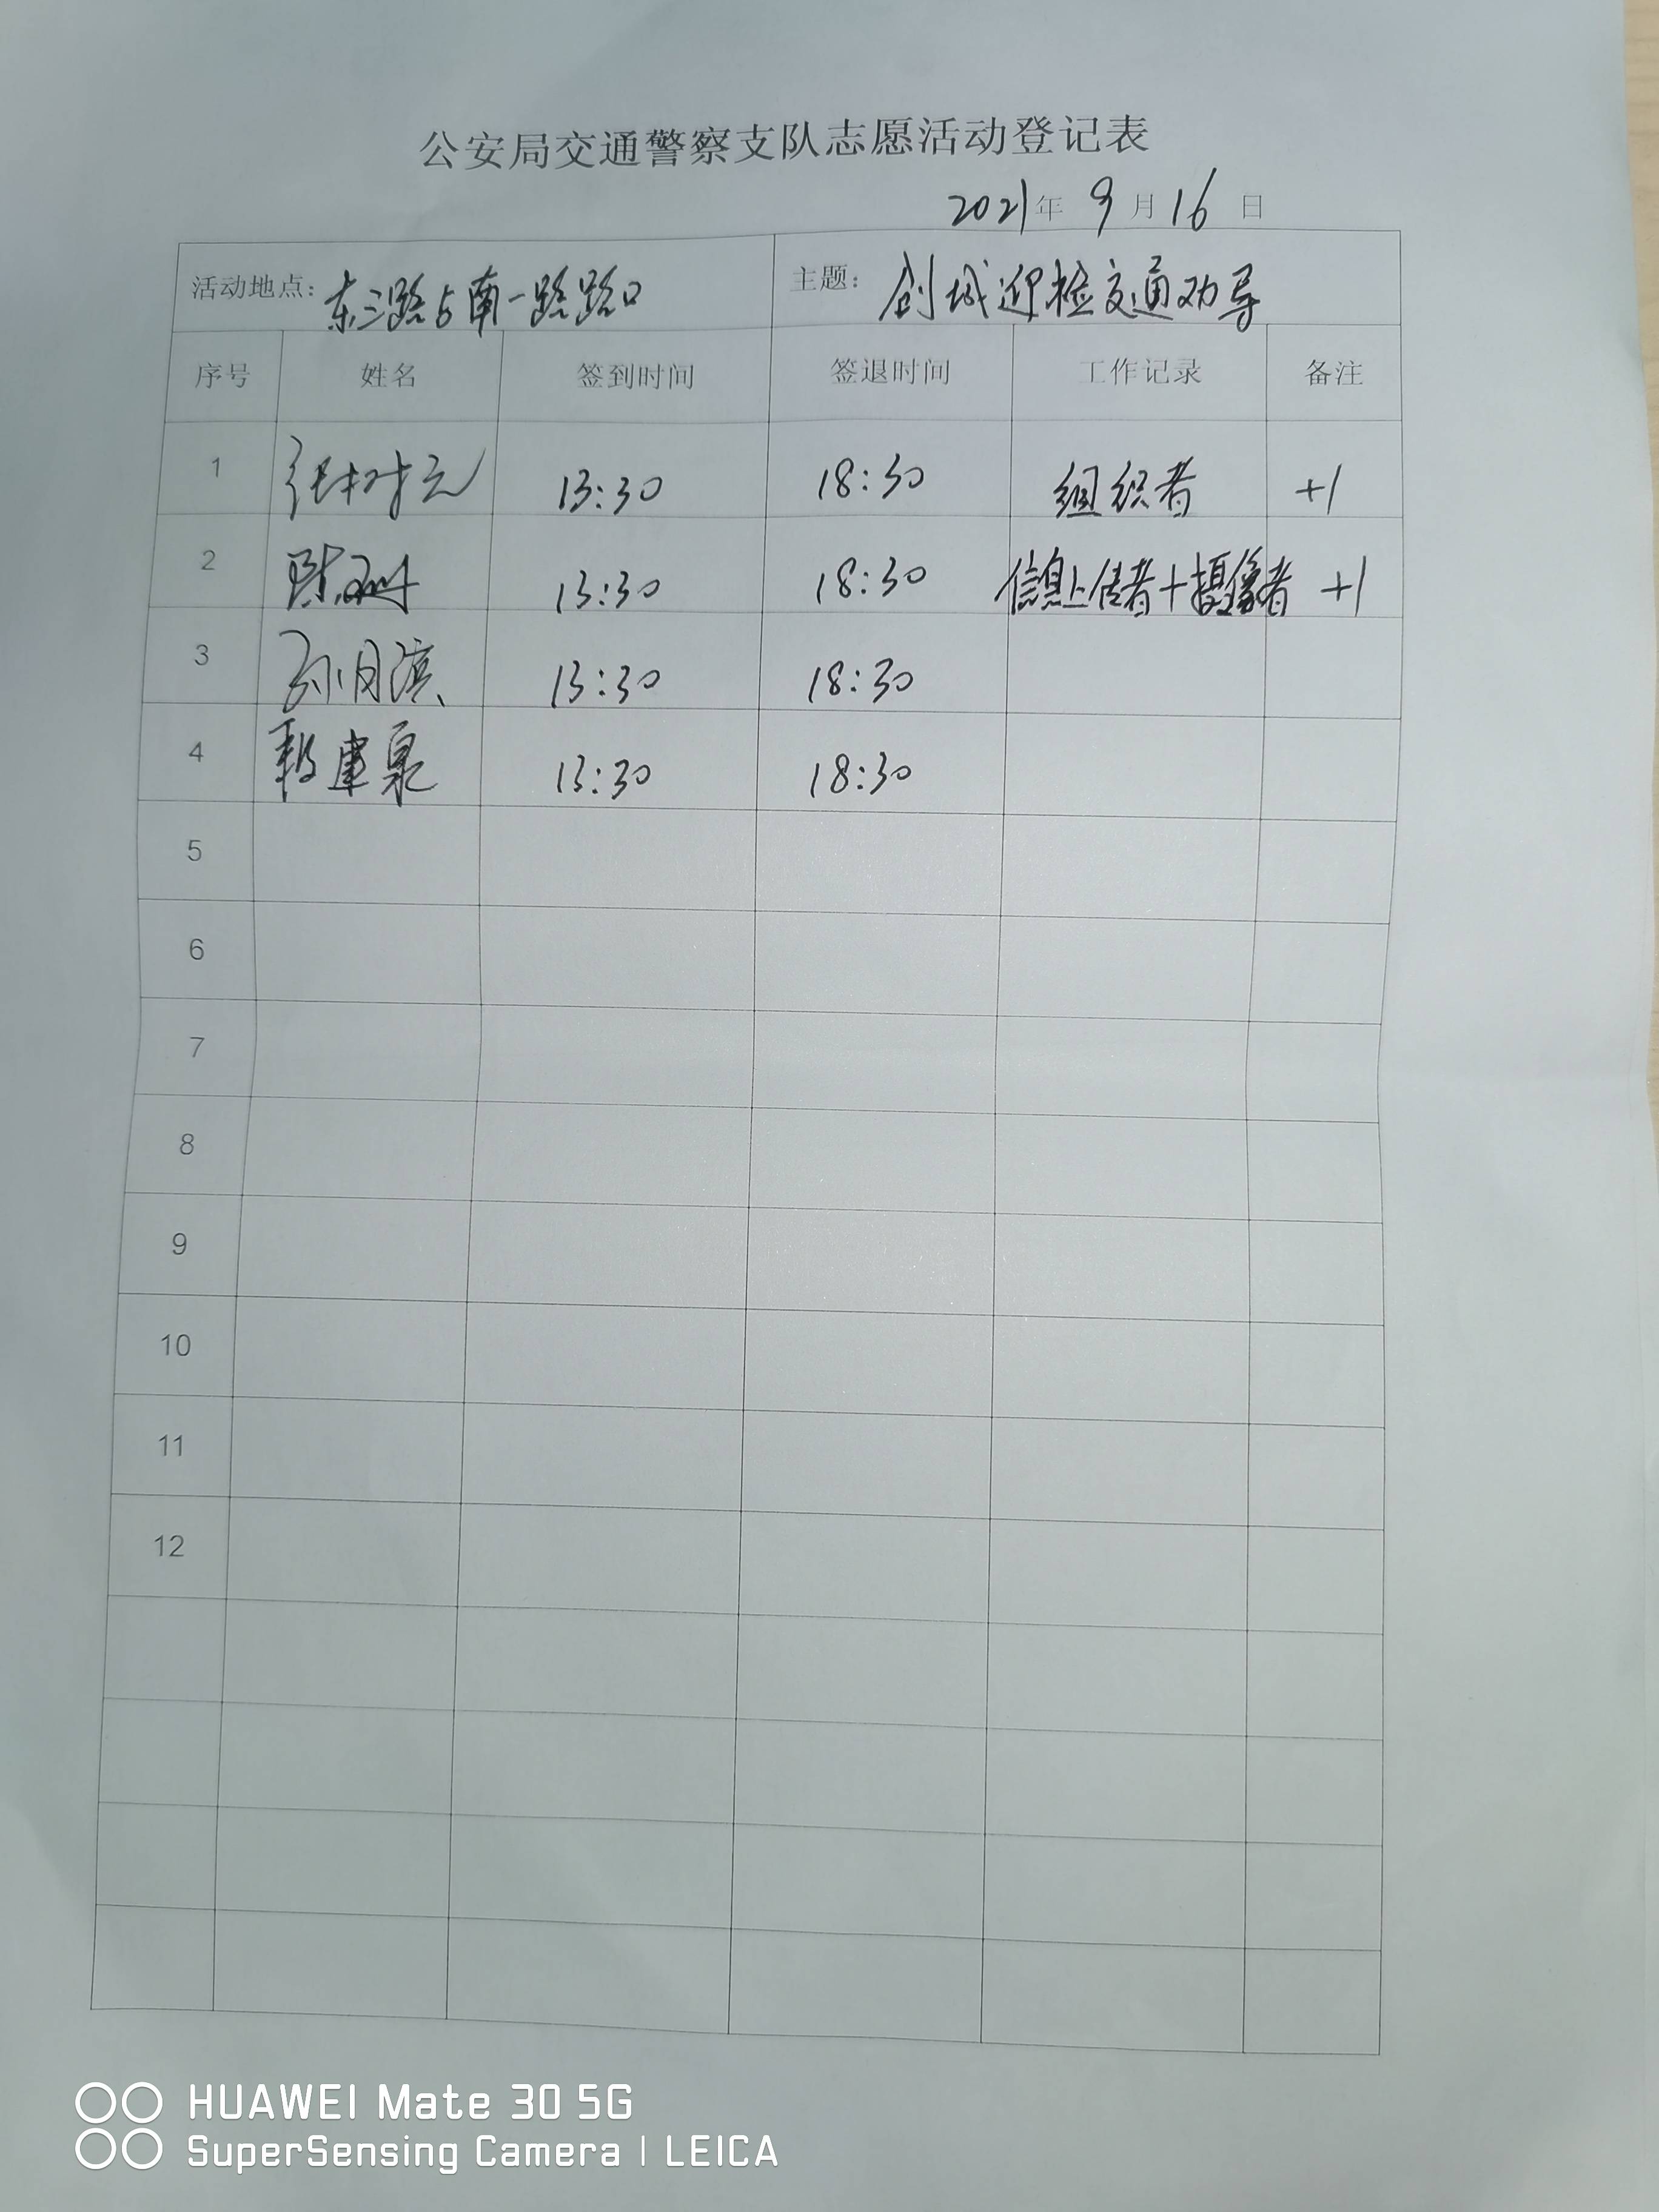 公安局交通警察支队志愿活动登记表
2021年 9月16日
活动地点: 东三路与南一路路口 主题: 创城迎检交通劝导
序号 姓名 签到时间 签退时间 工作记录 备注
1 13:30 18:30 组织者 +1
2 13:30 18:30 信息上传者+摄像者 +1
3 孙月滨 13:30 18:30
4 建泉 13:30 18:30
5
6
7
8
9
10
11
12
HUAWEI Mate 30 5G
SuperSensing Camera | LEICA